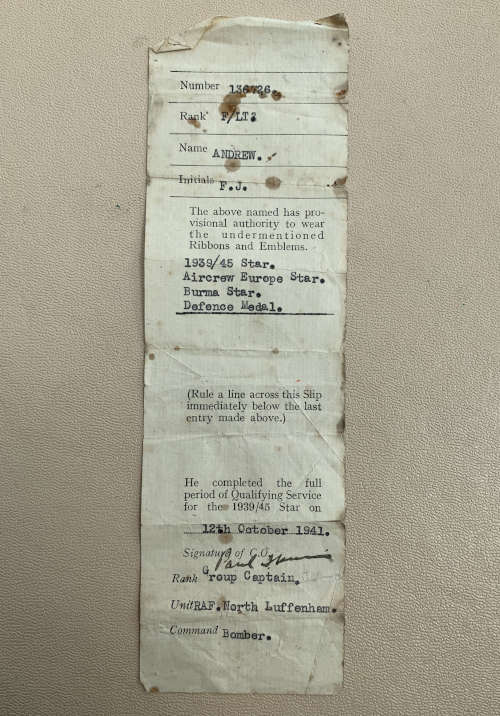 Number 136726.
Rank F/LT.
Name ANDREW.
Initials F.J.
The above named has pro-
visional authority to wear
the undermentioned
Ribbons and Emblems.
1939/45 Star.
Aircrew Europe Star.
Burma Star.
Defence Medal.
(Rule a line across this Slip
immediately below the last
entry made above.)
He completed the full
period of Qualifying Service
for the 1939/45 Star on
12th October 1941.
Signature of C.O. Paul
Rank Group Captain.
Unit RAF. North Luffenham.
Command Bomber.